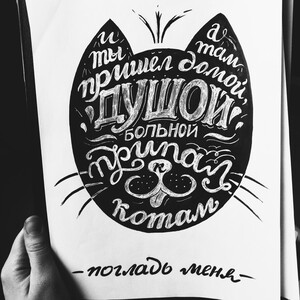 и а
ты там
пришел домой,
душой
больной
припал
к
котам
-погладь меня-